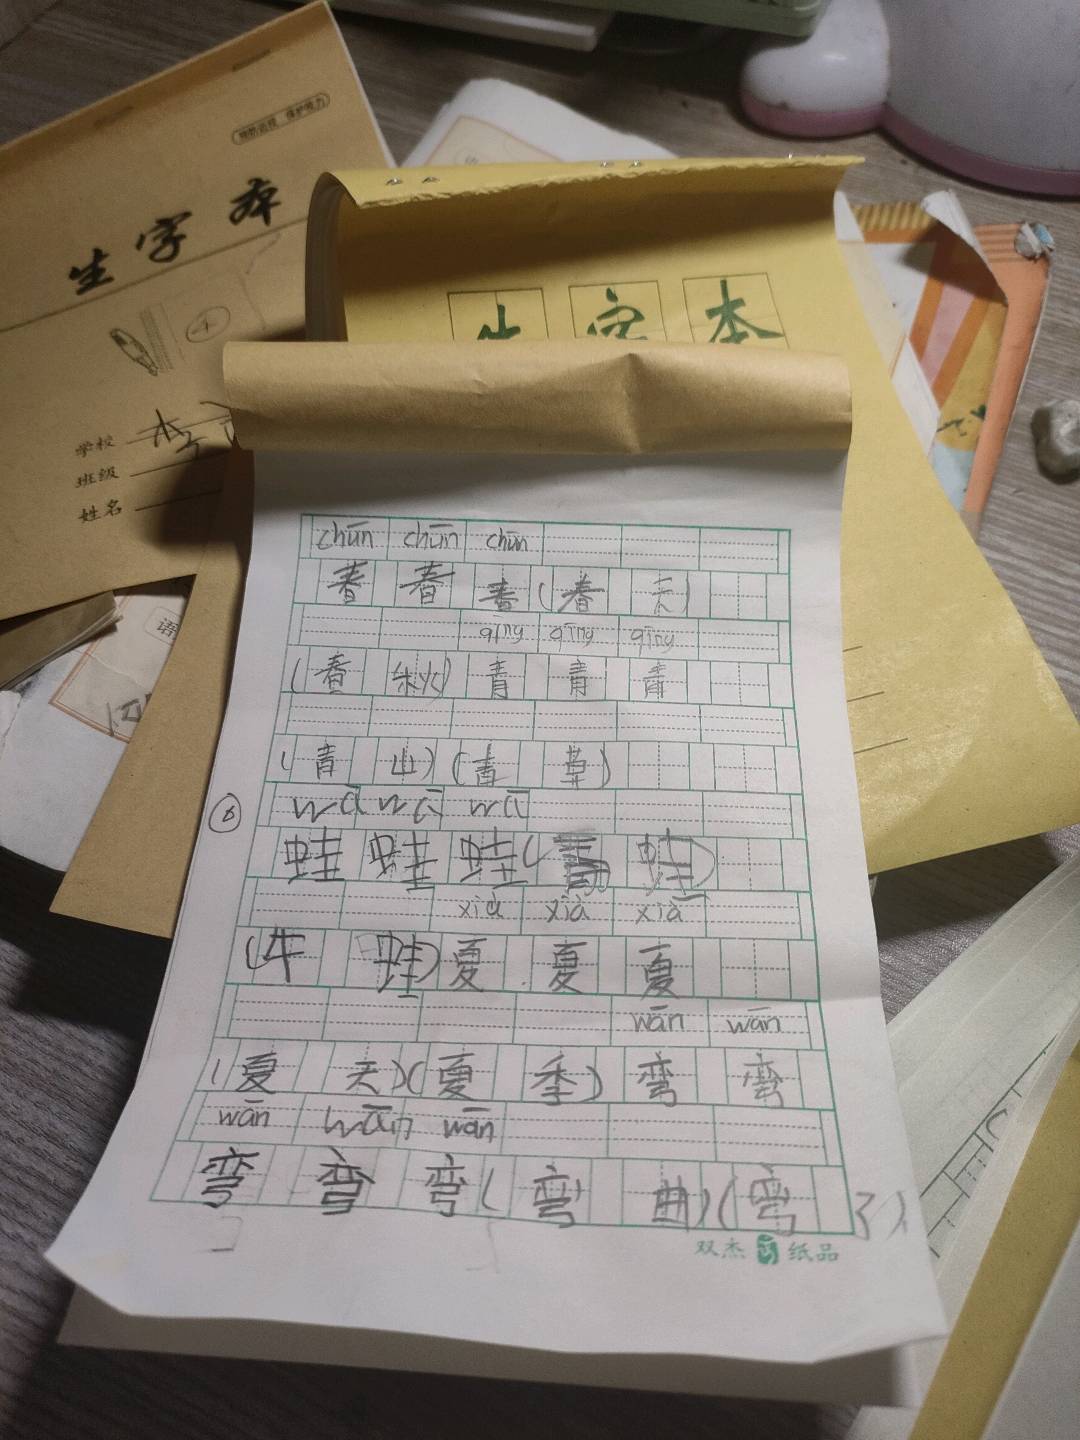 预防近视 保护视力
生字本
4
学校
班级
姓名
生字本
chūn chūn chūn
春 春 春 (春 天)
qīng qīng qīng
(春 秋) 青 青 青
(青 山) (青 草)
wā wā wā
6
蛙 蛙 蛙 (青 蛙)
xià xià xià
(牛 蛙) 夏 夏 夏
wān wān
(夏 天) (夏 季) 弯 弯
wān wān wān
弯 弯 弯 (弯 曲) (弯 了)
双杰 纸品